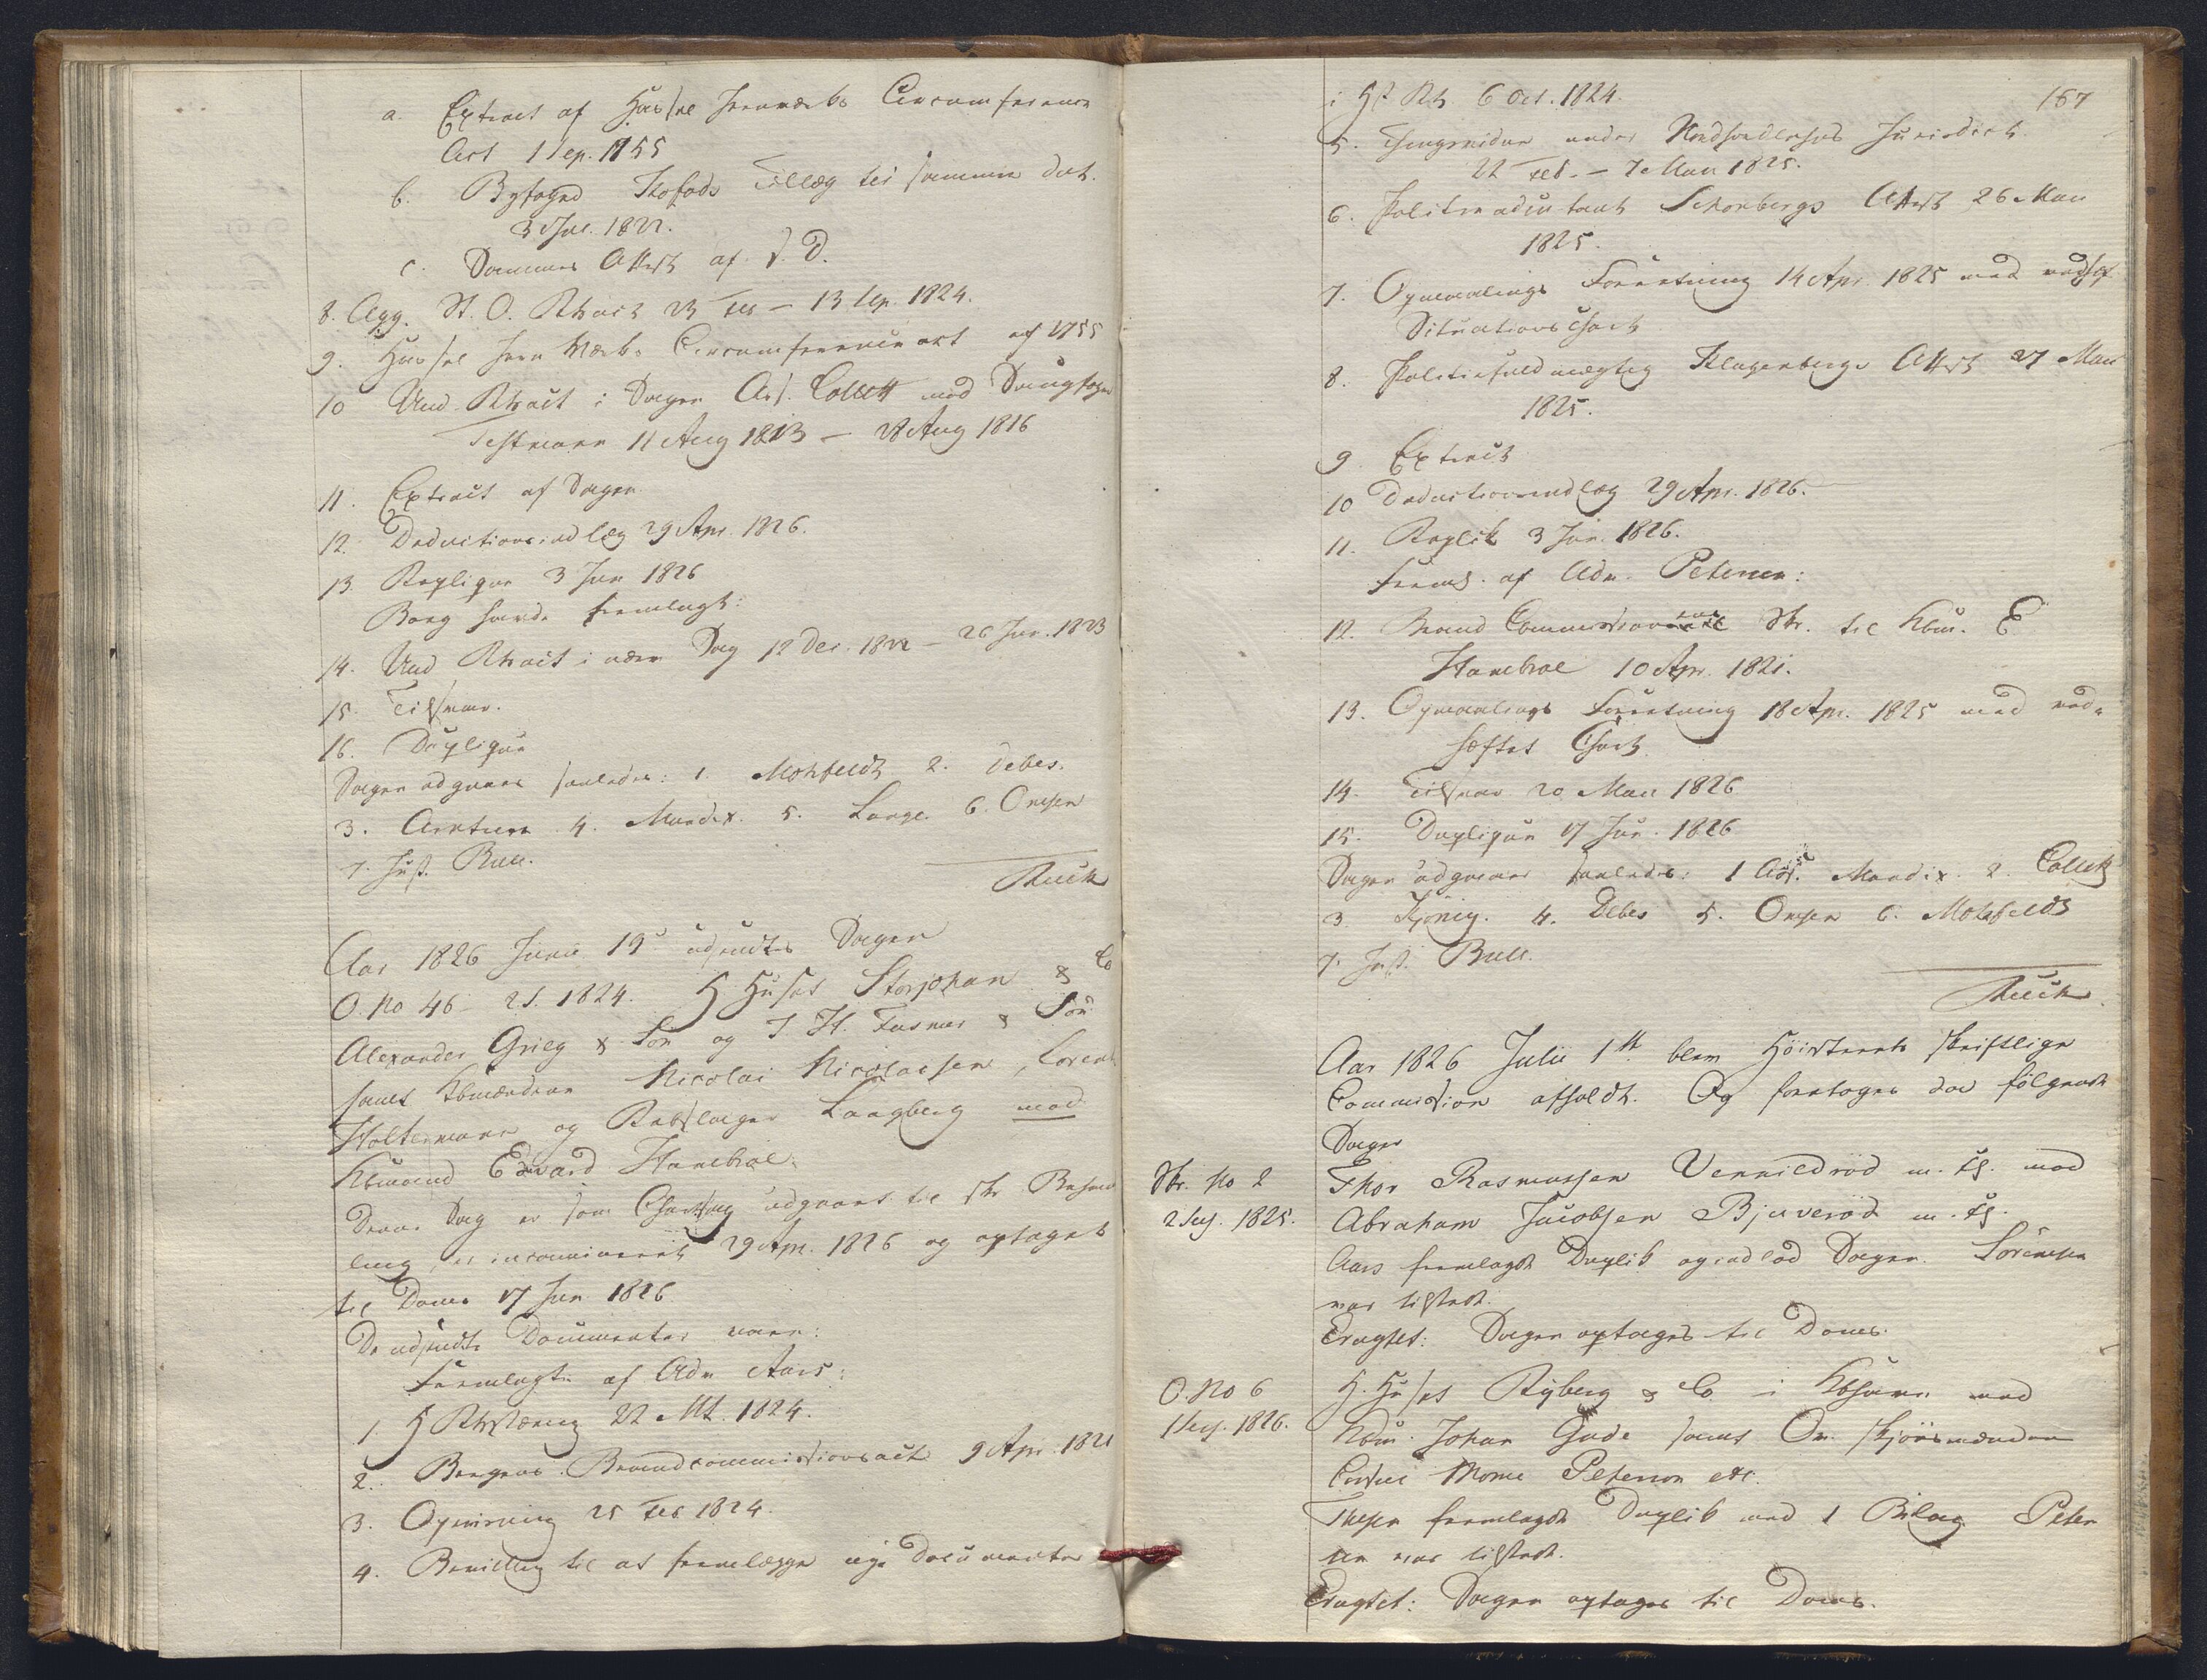 a. Extract af Hassel Jernværks Circumference
Act 1 Sep. 1755
b. Byfoged Kofods Tillæg til samme dat.
3 Jul. 1822.
c. Sammes Attest af s. D.
8. Agg. St. O. Rtsact 23 Feb – 13 Sep. 1824.
9. Hassel Jern Værks Circumferenceact af 1755
10 Und. Rtsact i Sagen Ass. Collett mod
11 Aug 1813 – 28 Aug 1816
11. Extract af Sagen
12. Deductionsindlæg 29 Apr. 1826.
13. Replique 3 Jun 1826
Borg havde fremlagt:
14. Und Rtsact i nærv Sag 12 Dec. 1822 – 26 Jun. 1823
15. Tilsvar.
16. Duplique
Sagen udgaaer saaledes: 1. Mohfeldt 2. Debes.
3. Arntzen 4. Mandix. 5. Lange. 6. Omsen
7. Just. Bull.
Munk
Aar 1826 Junii 19d udsendtes Sagen
O. No 46 – 2 S. 1824. H Huset Storjohan & Co
Alexander Grieg & Søn og J H. Fasmer & Søn
samt Kbmændene Nicolai Nicolaisen, Lorentz
Holtermann og Rebslager Langberg mod
Kbmand Edvard Hambroe.
Denne Sag er som Chartsag udgaaet til skr. Behand
ling, er incamineret 29 Apr. 1826 og optaget
til Doms 17 Jun 1826
De udsendte Documenter vare:
Fremlagte af Adv Aars:
1. H Rtsstævng 22 Mt. 1824.
2. Bergens Brandcommissionsact 9 Apr. 1821
3. Opreisning 25 Feb 1824.
4. Bevilling til at fremlægge nye Documenter
167
i Hst Rt 6 Oct. 1824.
5. Thingsvidne under Nordhordlehns Jurisdict.
22 Feb. – 7 Mai 1825.
6. Politieadjutant Schonbergs Attest 26 Mai
1825.
7. Opmaalings Forretning 14 Apr. 1825 med vedhft
Situationschart
8. Politiefuldmægtig Klagenbergs Attest 27 Mai
1825.
9. Extract
10 Deductionsindlæg 29 Apr. 1826.
11. Replik 3 Jun. 1826.
Freml. af Adv. Petersen:
12. Brand Commissionens Skr. til Kbm. E
Hambroe 10 Apr. 1821.
13. Opmaalings Forretning 18 Apr. 1825 med ved-
hæftet Chart
14. Tilsvar 20 Mai 1826
15. Duplique 17 Jun. 1826
Sagen udgaaer saaledes: 1 Ass. Mandix. 2. Collett
3. Kjønig. 4. Debes 5. Omsen 6. Mohtfeldt
7. Just. Bull.
Munk
Aar 1826 Julii 1st blev Høisterets skriftlige
Commission afholdt. Og foretoges da følgende
Sager
Skr. No 2
2 Sess. 1825.
Thor Rasmussen Vennildrød m. fl. mod
Abraham Jacobsen Bjuverød m. fl.
Aars fremlagde Duplik og indlod Sagen. Sørensen
var tilstede.
Eragtet: Sagen optages til Doms.
O. No 6
1 Sess. 1826.
H. Huset Ryberg & Co i Kbhavn mod
Kbm. Johan Gude samt Ov. Skjønsmændene
Consul Mome Peterson etc.
Thesen fremlagde Duplik med 1 Bilag Peter
sen var tilstede.
Eragtet: Sagen optages til Doms.